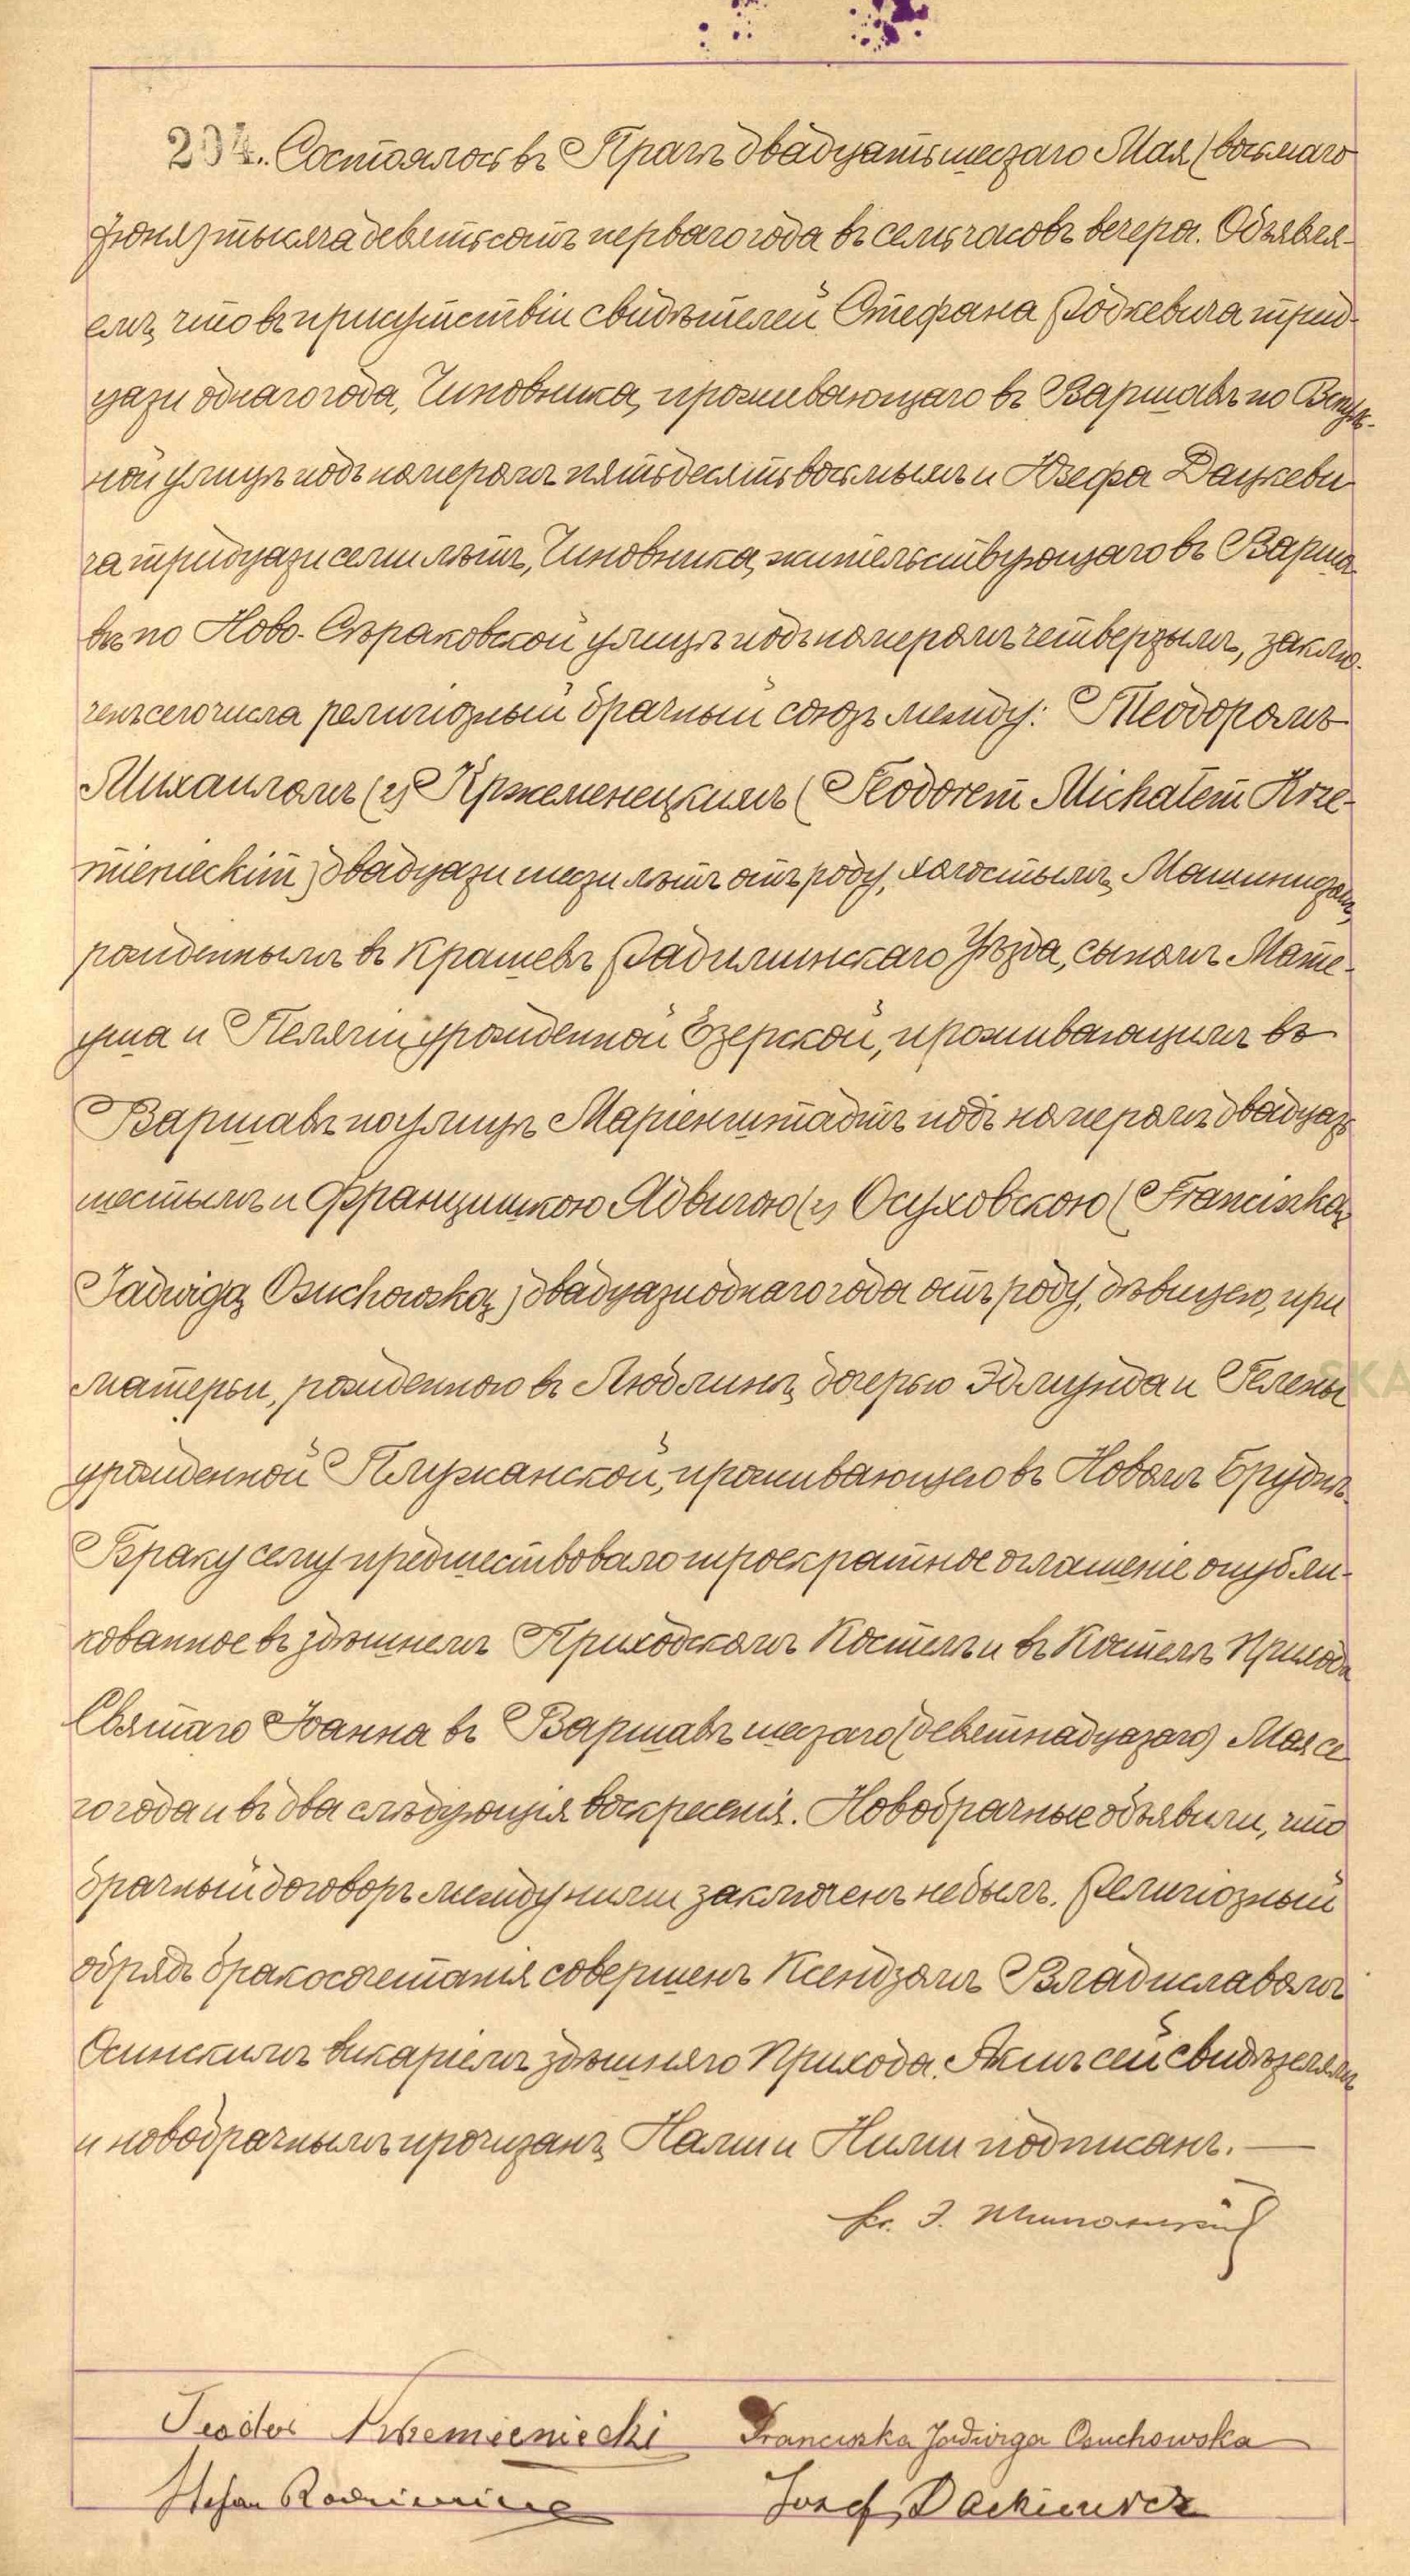 204. Состоялось въ Прагѣ двадцать шестаго Мая (восьмаго
Іюня) тысяча девятьсотъ перваго года въ семь часовъ вечера. Объявля-
емъ, что въ присутствіи свидѣтелей Стефана Родкевича трид-
цати однаго года, Чиновника, проживающаго въ Варшавѣ по Вспуль-
ной улицѣ подъ номеромъ пятьдесятъ восьмымъ и Юзефа Дацкеви
ча тридцати семи лѣтъ, Чиновника, жительствующаго въ Варша-
вѣ по Ново-Сѣраковской улицѣ подъ номеромъ четвертымъ, заклю-
ченъ сего числа религіозный брачный союзъ между: Теодоромъ
Михаиломъ (2) Кржеменецкимъ (Teodorem Michałem Krze-
mienieckim) двадцати шести лѣтъ отъ роду, холостымъ, Машинистомъ,
рожденнымъ въ Крашевѣ Радиминскаго Уѣзда, сыномъ Мате-
уша и Пелягіи урожденной Езерской, проживающимъ въ
Варшавѣ по улицѣ Маріенштадтъ подъ номеромъ двадцать
шестымъ и Францишкою Ядвигою (2) Осуховскою (Franciszką
Jadwigą Osuchowską) двадцати однаго года отъ роду, дѣвицею, при
матери, рожденною въ Люблинѣ, дочерью Эдмунда и Гелены
урожденной Плужанской, проживающею въ Новомъ Бруднѣ.
Браку сему предшествовало троекратное оглашеніе опубли-
кованное въ здѣшнемъ Приходскомъ Костелѣ и въ Костелѣ Прихода
Святаго Іоанна въ Варшавѣ шестаго (девятнадцатаго) Мая се-
го года и въ два слѣдующія воскресенія. Новобрачные объявили, что
брачный договоръ между ними заключенъ не былъ. Религіозный
обрядъ бракосочетанія совершенъ Ксендзомъ Владиславомъ
Осинскимъ викаріемъ здѣшняго Прихода. Актъ сей свидѣтелямъ
и новобрачнымъ прочитанъ, Нами и Ними подписанъ.—
Кс. З.
Teodor Krzemieniecki Franciszka Jadwiga Osuchowska
Stefan Józef Dackiewicz